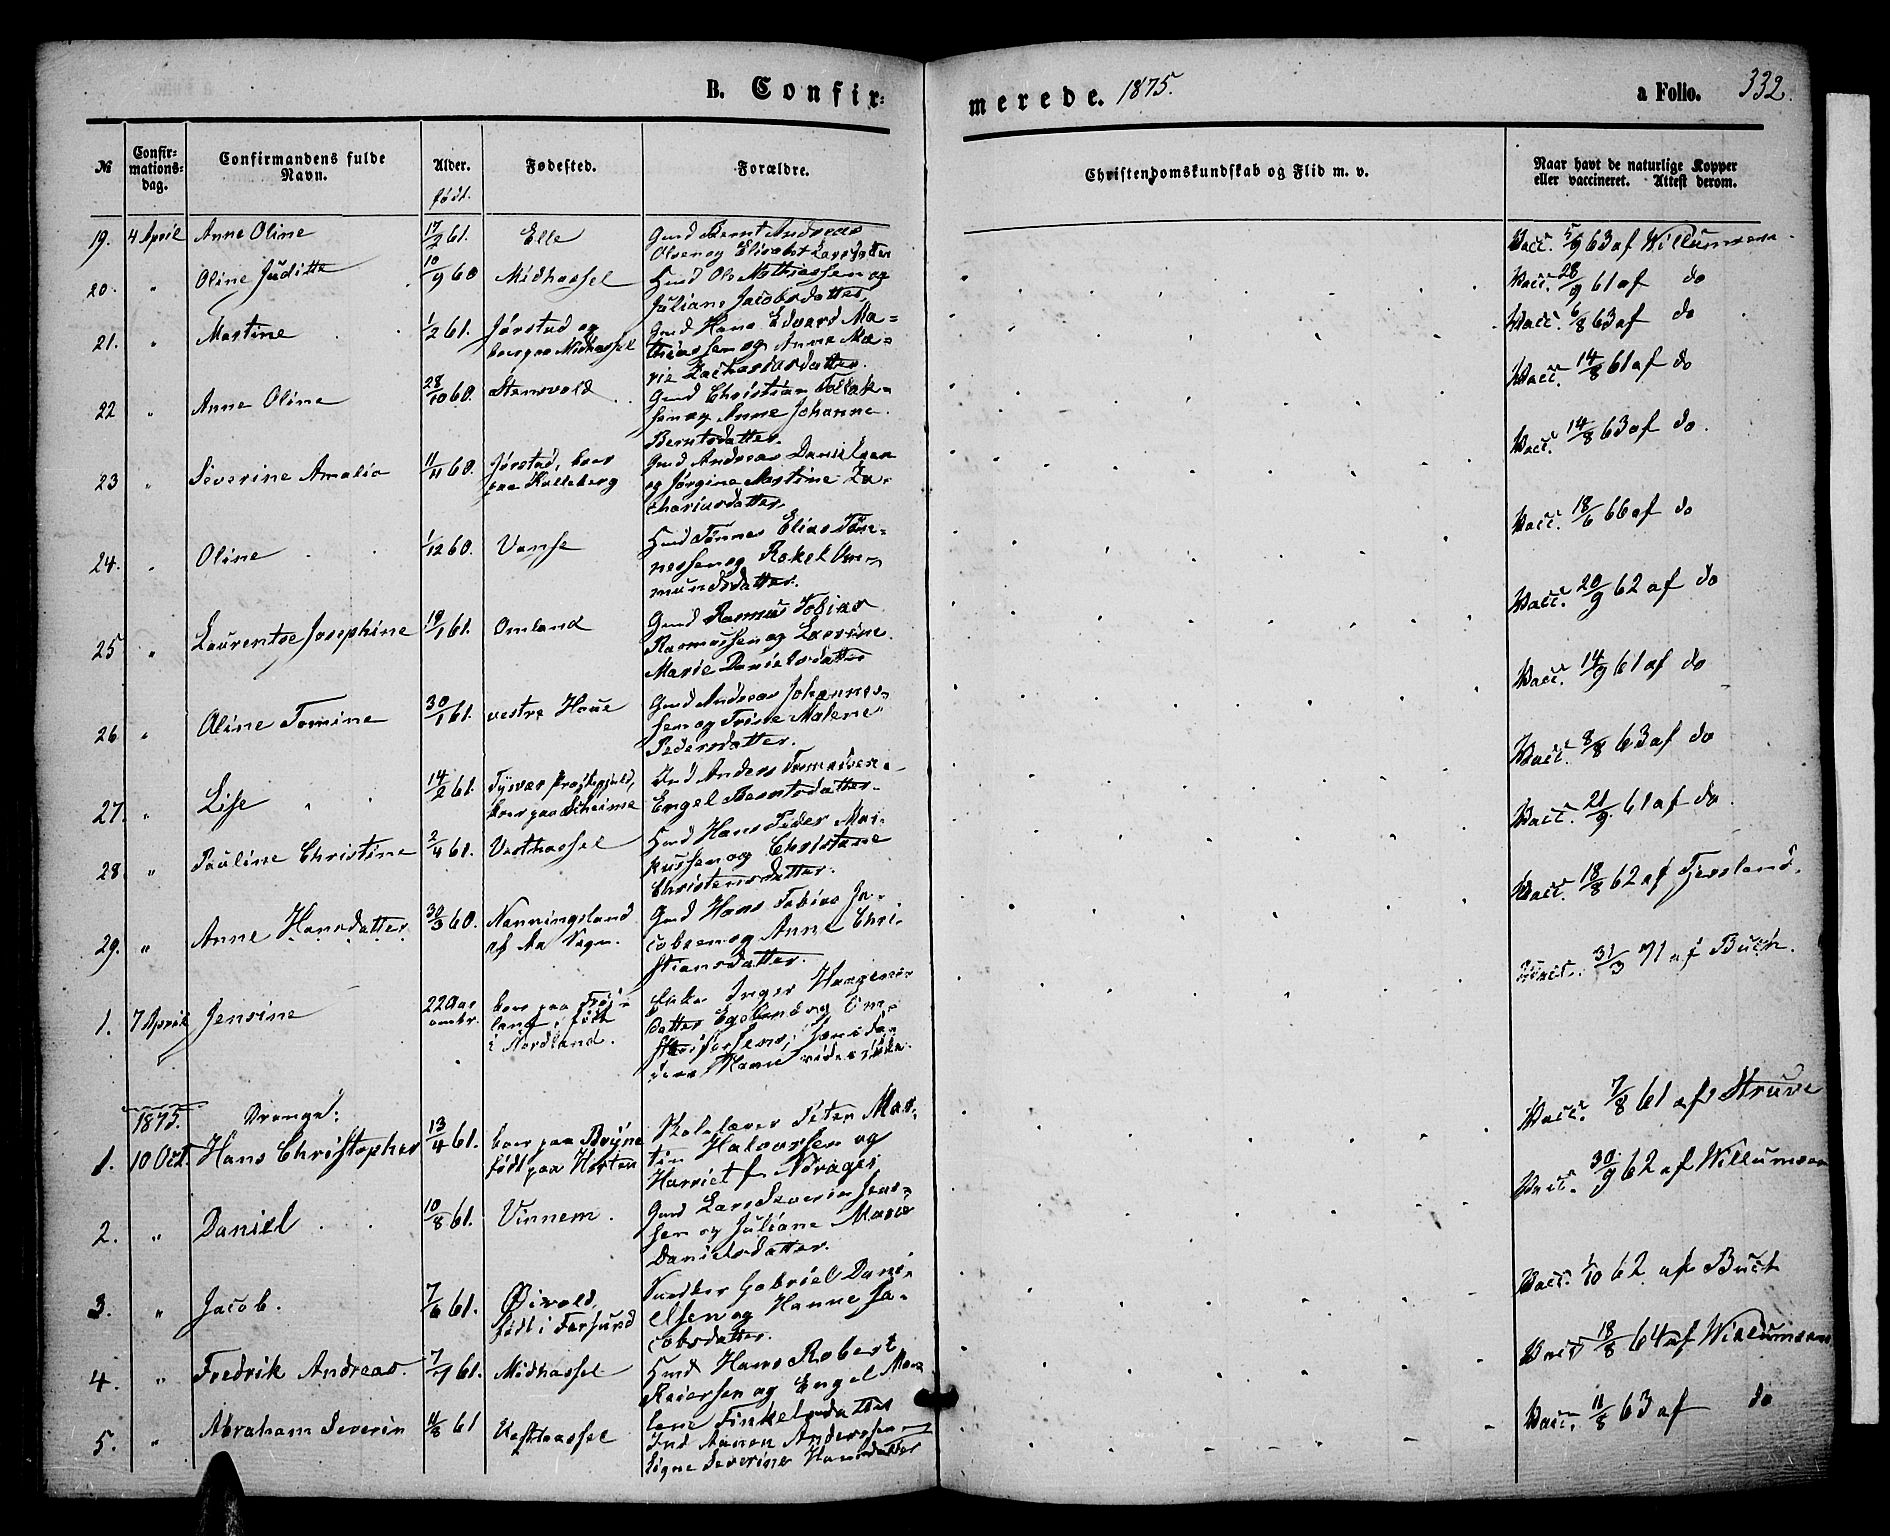 B. Confir-
merede. 1875.
a Folio. 332.
№
Confir-
mations-
dag.
Confirmandens fulde
Navn.
Alder.
født.
Fødested.
Forældre.
Christendomskundskab og Flid m. v.
Naar havt de naturlige Kopper
eller vaccineret. Attest derom.
19. 4 April Anne Oline 17/2 61. Elle Gmd Bernt Andreas
Olsen og Elisabet Larsdatter
Vacc. 5/9 63 af Willumsen
20. " Oline Juditte 10/9 60 Midhassel Hmd Ole Mathiassen og
Juliane Jacobsdatter
Vacc. 28/9 61 af do
21. " Martine 1/2 61. Jørstad og
boer paa Midhassel
Gmd Hans Edvard Ma-
thiassen og Anne Ma-
rie Zachariasdatter
Vacc. 6/8 63 af do
22 " Anne Oline 28/10 60. Stensvold Gmd Christian Tollak-
sen og Anne Johanne
Berntsdatter.
Vacc. 14/8 61 af do
23 " Severine Amalia 11/11 60. Jørstad, boer
paa Kalleberg
Gmd Andreas Danielsen
og Jørgine Martine Za-
chariasdatter.
Vacc. 14/8 63 af do.
24. " Oline 1/12 60. Vanse Hmd Tønnes Elias Tøn-
nessen og Rakel Om-
mundsdatter.
Vacc. 18/6 66 af do
25 " Laurentse Josephine 19/1 61. Omland Gmd Rasmus Tobias
Rasmussen og Lavine
Marie Danielsdatter
Vacc. 20/9 62 af do
26 " Oline Tomine 30/1 61. vestre Haue Gmd Andreas Johannes-
sen og Trine Malene
Pedersdatter.
Vacc. 14/9 61 af do
27. " Lise 14/2 61. Tysvær Præstegjeld,
boer paa
Ind Anders Tomassen
Engel Berntsdatter.
Vacc. 8/8 63 af do
28. " Pauline Christine 2/4 61. Vesthassel Hmd Hans Peder Mar-
kussen og Christine
Christensdatter.
Vacc. 21/9 61 af do.
29. " Anne Hansdatter 30/3 60. Nanningsland
af Aa Sogn.
Gmd Hans Tobias Ja-
cobsen og Anne Chri-
stiansdatter.
Vacc. 18/8 62 af Fjersland.
1. 7 April Jensine 22 Aar
boer paa
land, født
i Nordland.
Inger
datter Egeland og
Vacc. 31/3 71 af Buch.
1875. Drenge:
1. 10 Oct. Hans Christopher 13/4 61. boer paa Bryne
født paa Horten
Skolelærer Peter Mar-
tin Halvorsen og
Harriet f. Norager
Vacc. 7/8 61 af Struve
2. " Daniel 10/8 61. Vinnem. Gmd Lars Severin Jens-
sen og Juliane Marie
Danielsdatter.
Vacc. 30/9 62 af Willumsen
3. " Jacob. 7/6 61. Øivold,
født i Farsund
Snedker Gabriel Dani-
elsen og Hanne Ja-
cobsdatter.
Vacc. 1/10 62. af Buch
4. " Fredrik Andreas. 7/9 61. Midhassel Hmd Hans Robert
Reiersen og Engel Ma-
lene Tinkelsdatter
Vacc. 18/8 64 af Willumsen
5. " Abraham Severin 11/8 61 Vesthassel Ind Aanen Andersen
Signe Severine Hansdatter
Vacc. 11/8 63 af do